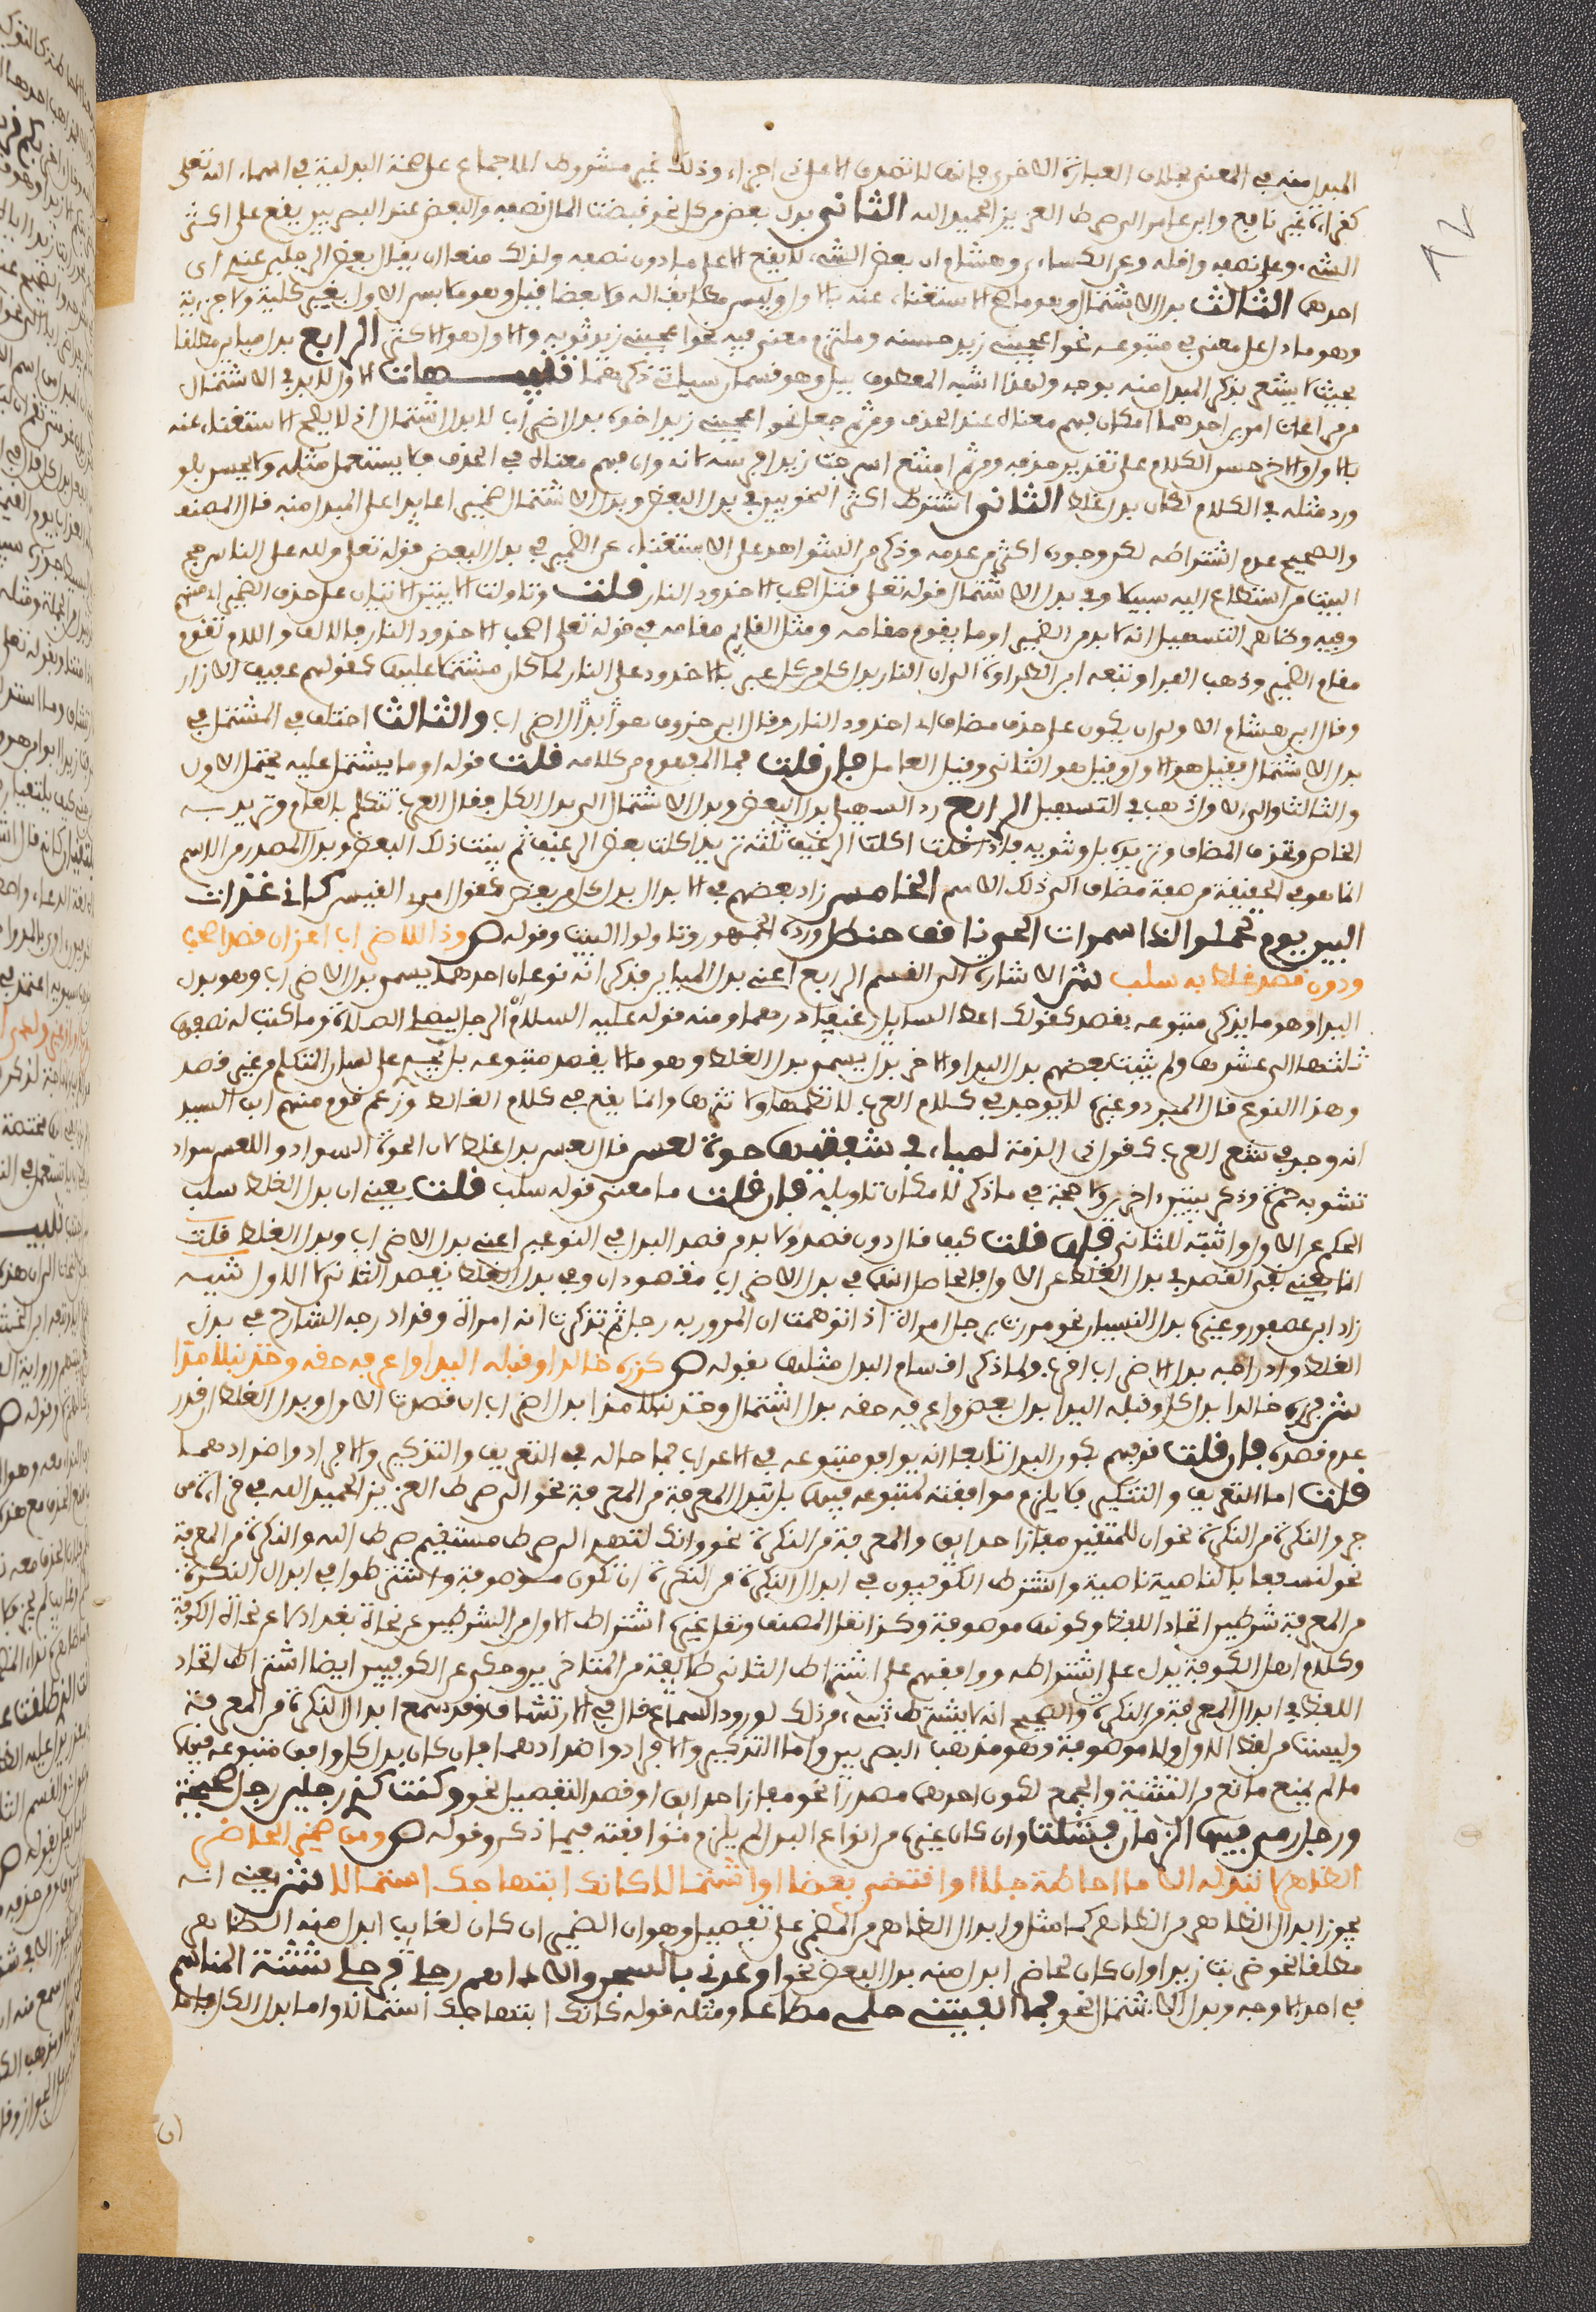 المبدل منه في المعنى بخلاف العبارة الاخرى فانها لا تصدق الا على ذي اجزاء وذلك غير مشروط للاجماع على صحة البدلية في اسماء الله تعلى
كقراءة غير نافع وابن عامر الى صراط العزيز الحميد الله الثاني بدل بعض من كل نحو قبضت المال نصفه والبعض عند البصريين يقع على اكثر
الشيء وعلى نصفه واقله وعن الكساءي وهشام ان بعض الشيء لا يقع الا على ما دون نصفه ولذلك منعا ان يقال بعض الرجلين عندي اي
احدهما الثالث بدل الاشتمال وهو ما صح الاستغناء عنه بالاول وليس مطابقا له ولا بعضا فقيل وهو ما يفسر الاول بغير كلية ولا جزءية
وهو ما دل على معنى في متبوعه نحو اعجبني زيد حسنه وملتزم معنى فيه نحو اعجبني زيد ثوبه والاول هو الاكثر الرابع بدل مباين مطلقا
بحيث لا يشعر بذكر المبدل منه بوجه ولهذا اشبه المعطوف ببل وهو قسمان سياتي ذكرهما تنبيهات الاول لا بد في الاشتمال
من مراعات امرين احدهما امكان فهم معناه عند الحذف ومن ثم جعل نحو اعجبني زيد اخوه بدل اضراب لا بدل اشتمال اذ لا يصح الاستغناء عنه
بالاول والاخر حسن الكلام على تقدير حذفه ومن ثم امتنع اسرجت زيدا فرسه لانه وان فهم معناه في الحذف فلا يستعمل مثله ولا يحسن فلو
ورد مثله في الكلام لكان بدل غلط الثاني اشترط اكثر النحويين في بدل البعض وبدل الاشتمال ضميرا عايدا على المبدل منه قال المصنف
والصحيح عدم اشتراطه لكن وجوده اكثر من عدمه وذكر من الشواهد على الاستغناء عن الضمير في بدل البعض قوله تعلى ولله على الناس حج
البيت من استطاع اليه سبيلا وفي بدل الاشتمال قوله تعلى قتل اصحب الاخدود النار قلت وتاولت الايتين الايتان على حذف الضمير اي منهم
وفيه وظاهر التسهيل انه لا بد من الضمير او ما يقوم مقامه ومثل القايم مقامه في قوله تعلى اصحب الاخدود النار فالالف واللام تقوم
مقام الضمير وذهب الفراء وتبعه ابن الطراوة الى ان النار بدل كل من كل عبر بالاخدود على النار لما كان مشتملا عليها كقولهم عفيف الازار
وقال ابن هشام الاولى ان يكون على حذف مضاف اي اخدود النار وقال ابن خروف هو بدل اضراب والثالث اختلف في المشتمل في
بدل الاشتمال فقيل هو الاول وقيل هو الثاني وقيل العامل فان قلت فما المفهوم من كلامه قلت قوله او ما يشتمل عليه يحتمل الاول
والثالث والى الاول ذهب في التسهيل الرابع رد السهيلي بدل البعض وبدل الاشتمال الى بدل الكل فقال العرب تتكلم بالعام وتريد به
الخاص وتحذف المضاف وتنويه فاذا قلت اكلت الرغيف ثلثه تريد اكلت بعض الرغيف ثم بينت ذلك البعض وبدل المصدر من الاسم
انما هو في الحقيقة من صفة مضاف الى ذلك الاسم الخامس زاد بعضهم في الابدال بدل كل من بعض كقول امرء القيس كاني غدات
البين يوم تحملوا لدا سمرات الحي ناقف حنظل ورده الجمهور وتاولوا البيت وقوله ص وذا للاضراب اعز ان قصدا صحب
ودون قصد غلط به سلب ش الاشارة الى القسم الرابع اعني بدل المباين فذكر انه نوعان احدهما يسمى بدل الاضراب وهو بدل
البدا وهو ما يذكر متبوعه بقصد كقولك اعط السايل رغيفا درهما ومنه قوله عليه السلام ان الرجل ليصلي الصلاة وما كتب له نصفها
ثلثها الى عشرها ولم يثبت بعضهم بدل البدا والاخر بدل يسمى بدل الغلط وهو ما لا يقصد متبوعه بل يجيء على لسان المتكلم من غير قصد
وهذا النوع قال المبرد وغيره لا يوجد في كلام العرب لا نظمها ولا نثرها وانما يقع في كلام الغالط وزعم قوم منهم ابن السيد
انه وجد في شعر العرب كقول ذي الرمة لمياء في شفتيها حوة لعس قال لعس بدل غلط لان الحوة السواد واللعس سواد
تشوبه حمرة وذكر بيتين اخرين ولا حجة في ما ذكر لامكان تاويله فان قلت ما معنى قوله سلب قلت يعني ان بدل الغلط سلب
الحكم عن الاول واثبته للثاني فان قلت كيف قال دون قصد ولا بد من قصد البدل في النوعين اعني بدل الاضراب وبدل الغلط قلت
انما يعني نفي القصد في بدل الغلط عن الاول فالحاصل انهما في بدل الاضراب مقصودان وفي بدل الغلط يقصد الثاني لا الاول تنبيه
زاد ابن عصفور وغيره بدل النسيان نحو مررت برجل امراة اذا توهمت ان المرور به رجل ثم تذكرت انه امراة وقد ادرجه الشارح في بدل
الغلط وادراجه بدل الاضراب اقرب ولما ذكر اقسام البدل مثلها بقوله ص كزره خالدا وقبله اليدا واعرفه حقه وخذ نبلا مدا
ش فزره خالدا بدل كل وقبله اليدا بدل بعض واعرفه حقه بدل اشتمال وخذ نبلا مدا بدل اضراب ان قصدت الاول وبدل الغلط ان قدر
عدم قصده فان قلت فهم بكون البدل تابعا انه يوافق متبوعه في الاعراب فما حاله في التعريف والتذكير والافراد واضدادهما
قلت اما التعريف والتنكير فلا يلزم موافقته لمتبوعه فيهما بل تبدل المعرفة من المعرفة نحو الى صراط العزيز الحميد الله في قراءة من
جر والنكرة من النكرة نحو ان للمتقين مفازا حدايق والمعرفة من النكرة نحو وانك لتهدي الى صراط مستقيم صراط الله والنكرة من المعرفة
نحو لنسفعا بالناصية ناصية واشترط الكوفيون في ابدال النكرة من النكرة ان تكون موصوفة واشترطوا في ابدال النكرة
من المعرفة شرطين اتحاد اللفظ وكونها موصوفة وكذا نقل المصنف ونقل غيره اشتراط الاول من الشرطين عن نحاة بغداد لا عن نحاة الكوفة
وكلام اهل الكوفة يدل على اشتراطه ووافقهم على اشتراط الثاني طايفة من المتاخرين وحكي عن الكوفيين ايضا اشتراط اتحاد
اللفظ في ابدال المعرفة من النكرة والصحيح انه لا يشترط شيء من ذلك لورود السماع قال في الارتشاف وقد سمع ابدال النكرة من المعرفة
وليست من لفظ الاول ولا موصوفة وهو مذهب البصريين واما التذكير والافراد واضدادهما فان كان بدل كل وافق متبوعه فيها
ما لم يمنع مانع من التثنية والجمع لكون احدهما مصدرا نحو مفازا حدايق او قصد التفصيل نحو وكنت كذي رجلين رجل صحيحة
ورجل رمى فيها الزمان فشلت وان كان غيره من انواع البدل لم يلزم موافقته فيما ذكر وقوله ص ومن ضمير الحاضر
الظاهر لا تبدله الا ما احاطة جلا او اقتضى بعضا او اشتمالا كانك ابتهاجك استمالا ش يعني انه
يجوز ابدال الظاهر من الظاهر كما مثل وابدال الظاهر من المضمر على تفصيل وهو ان الضمير ان كان لغايب ابدل منه الظاهر
مطلقا نحو ضربت زيدا وان كان لحاضر ابدل منه بدل البعض نحو اوعدني بالسجن والاداهم رجلي فرجلي شثنة المناسم
في احد الاوجه وبدل الاشتمال نحو فما الفيتني حلمي مضاعا ومثله قوله كانك ابتهاجك استمالا واما بدل الكل فان